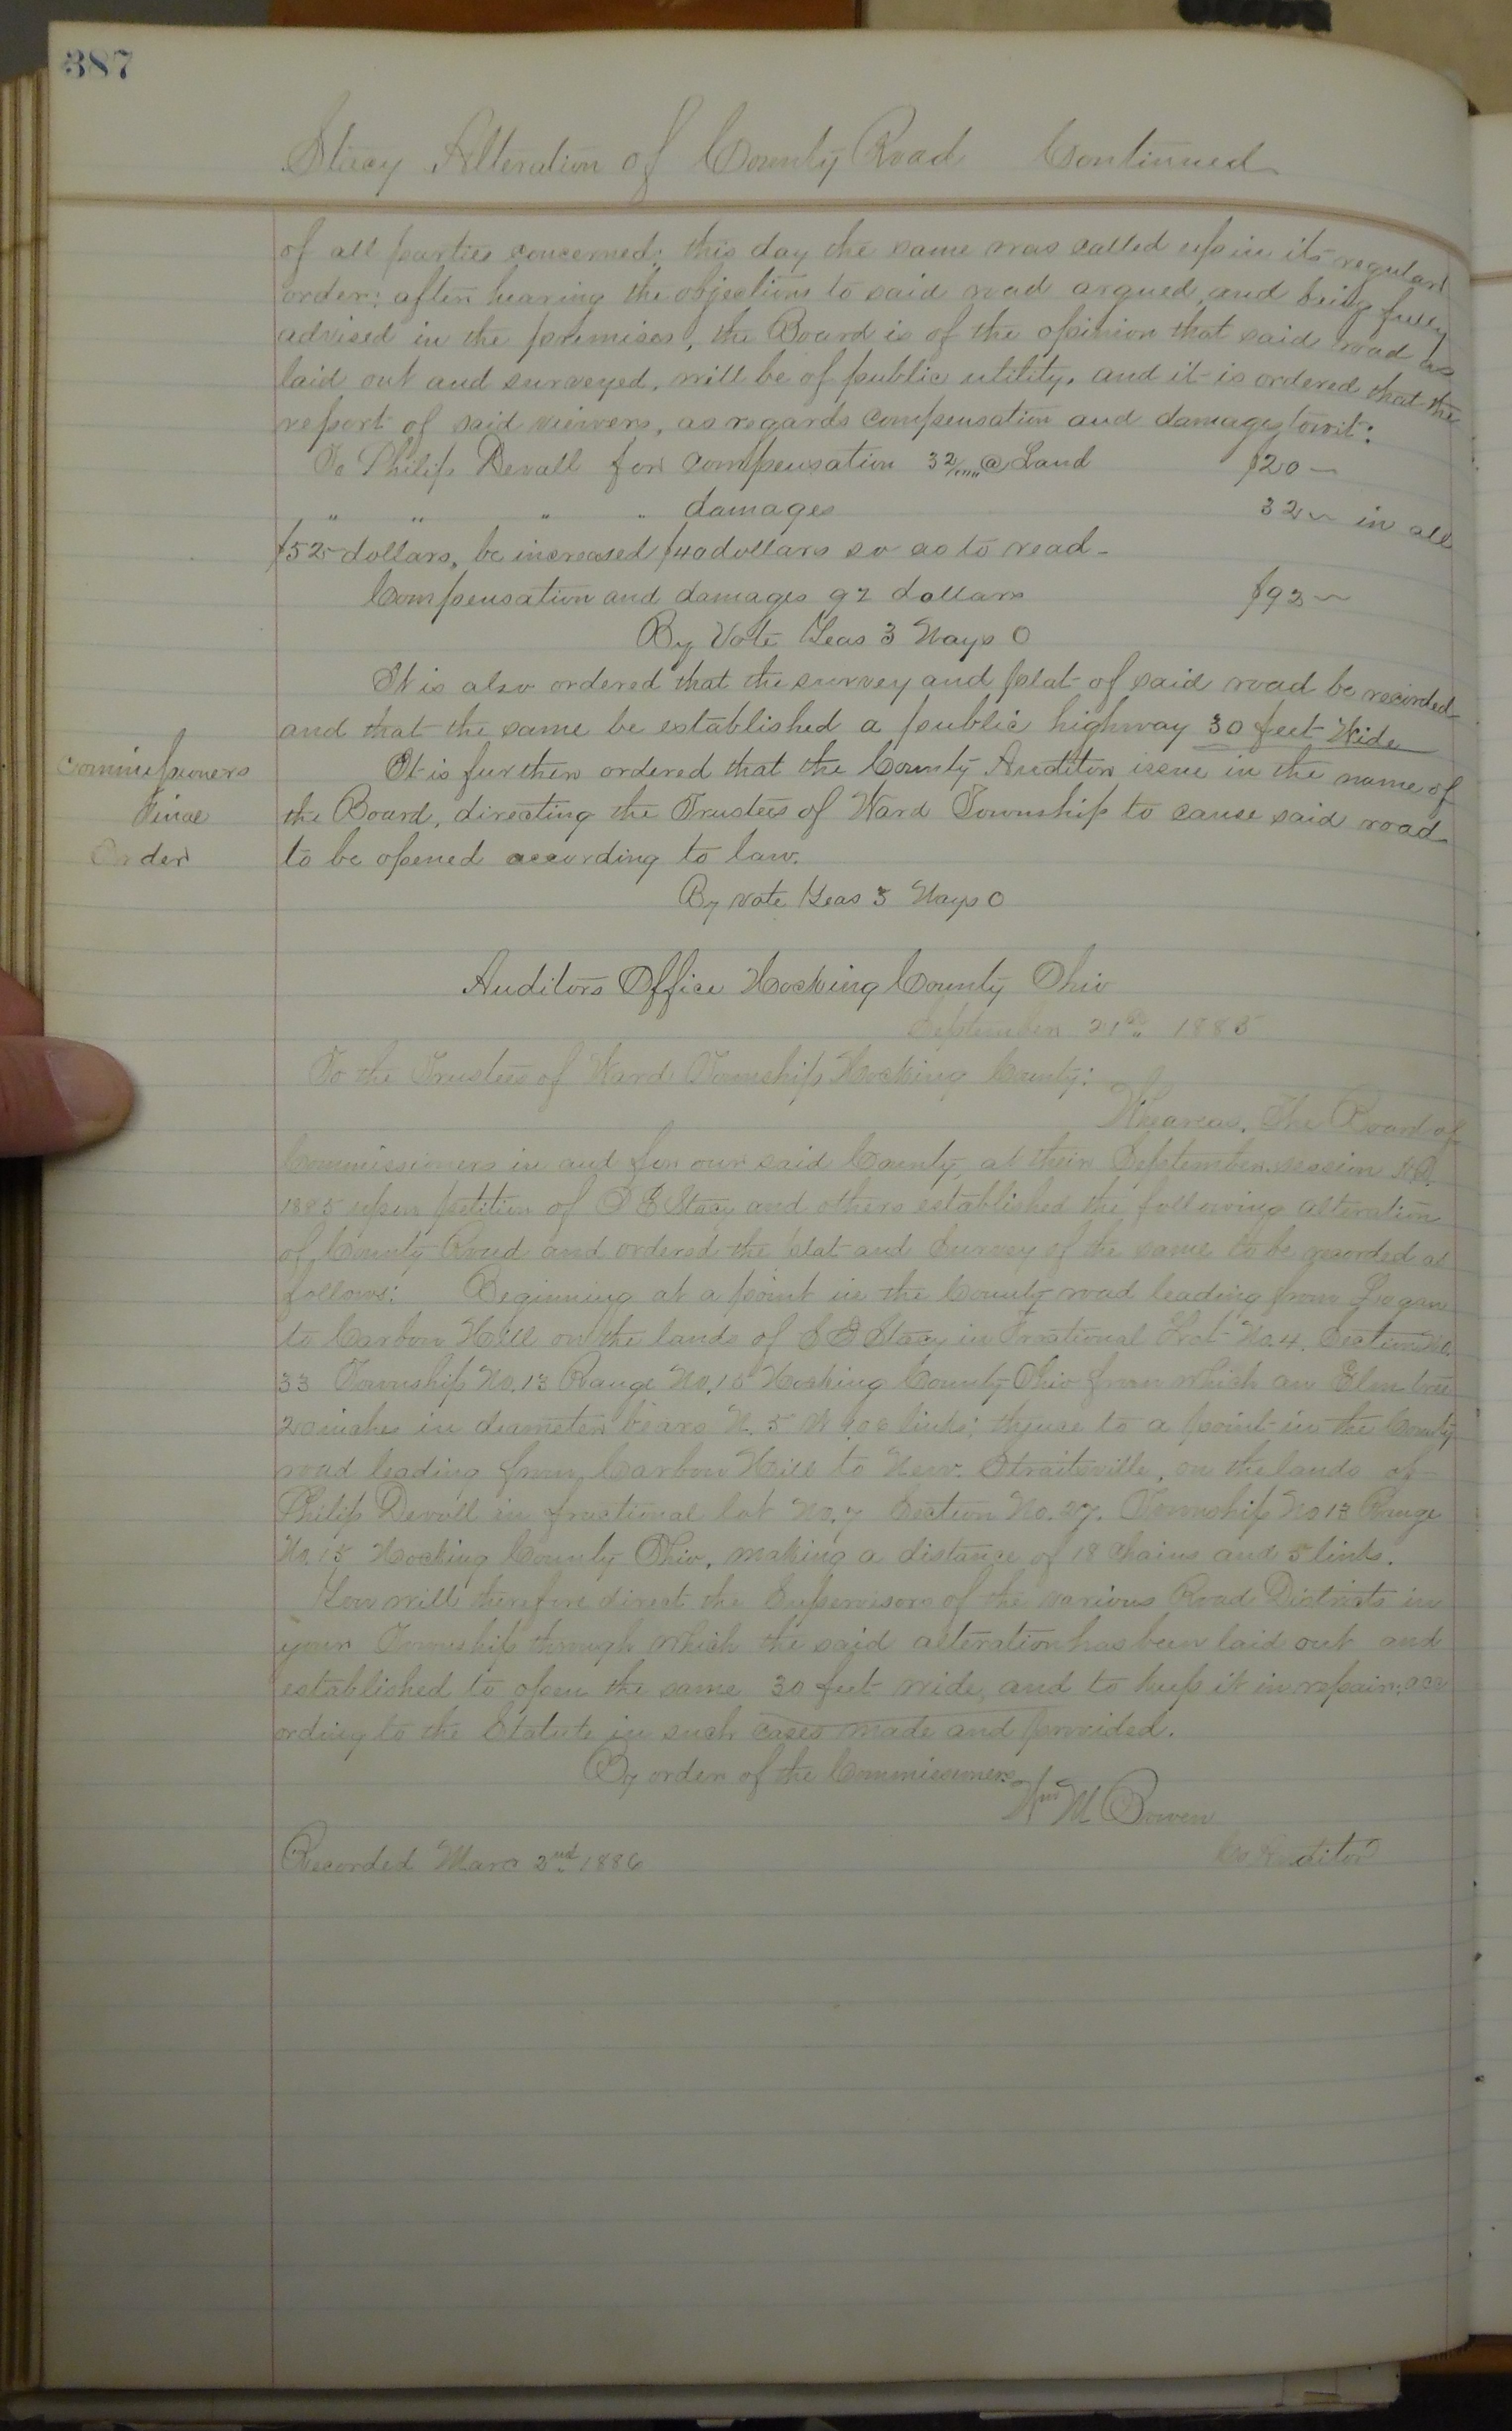 387
Stacy Alteration of County Road Continued
of all parties concerned; this day the same was called up in its regular
order; after hearing the objections to said road argued, and being fully
advised in the premises, the Board is of the opinion that said road as
laid out and surveyed, will be of public utility, and it is ordered that the
report of said viewers, as regards compensation and damages towit:
To Philip Devall for Compensation 32/100 @ Land $20 —
" " " " damages 32 — in all
$52 dollars, be increased $40 dollars so as to read -
Compensation and damages 92 dollars $92 —
By Vote Yeas 3 Nays 0
It is also ordered that the survey and plat of said road be recorded
and that the same be established a public highway 30 feet Wide
Commissioners
Final
Order
It is further ordered that the County Auditor issue in the name of
the Board, directing the Trustees of Ward Township to cause said road
to be opened according to law.
By vote Yeas 3 Nays 0
Auditors Office Hocking County Ohio
September 21st 1885
To the Trustees of Ward Township Hocking County:
Whereas, The Board of
Commissioners in and for our said County, at their September session A.D.
1885 upon petition of E Stacy and others established the following alteration
of County Road and ordered the plat and Survey of the same to be recorded as
follows: Beginning at a point in the County road leading from Logan
to Carbon Hill on the lands of Stacy in Fractional Lot No. 4. Section No.
33 Township No. 13 Range No. 15 Hocking County Ohio from which an Elm tree
20 inches in diameter bears N. 5 W links; thence to a point in the County
road leading from Carbon Hill to New Straitsville, on the lands of
Philip Devall in fractional lot No. 7 Section No. 27. Township No 13 Range
No. 15 Hocking County Ohio, making a distance of 18 Chains and 5 links.
You will therefore direct the Supervisors of the various Road Districts in
your Township through which the said alteration has been laid out and
established to open the same 30 feet wide, and to keep it in repair, acc
ording to the Statute in such cases made and provided.
By order of the Commissioners
Wm M Bowen
Co Auditor
Recorded Marc 2nd 1886